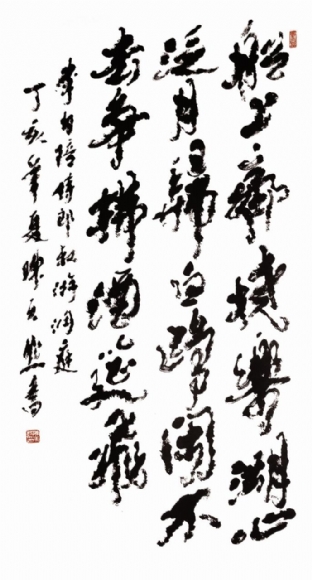 船上齊橈樂湖心
泛月歸白鷗閑不
去爭拂酒筵飛
李白陪侍郎叔游洞庭
丁亥年夏陳天然書